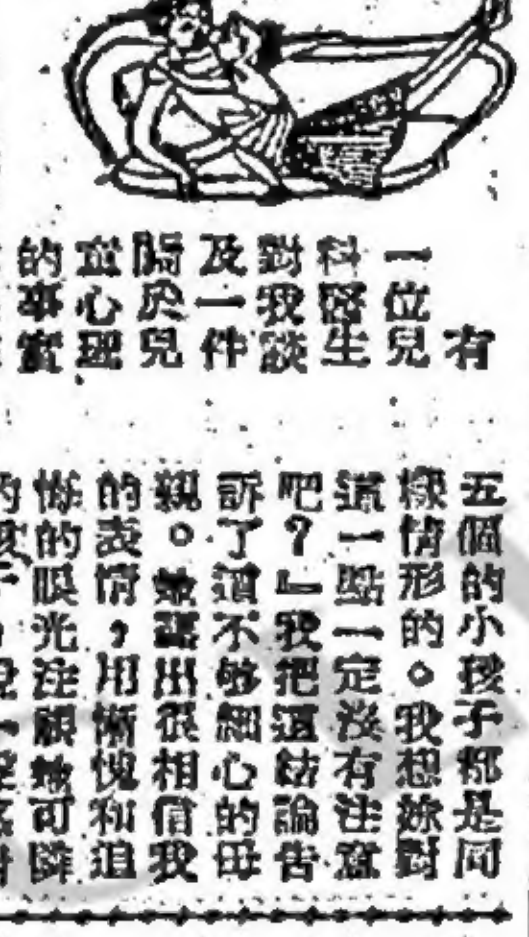 有
一位兒
科醫生
對我談
及一件
關於兒
童心理
的事實
五個的小孩子都是同
樣情形的。我想妳對
這一點一定沒有注意
吧?』我把這結論告
訴了這不够細心的母
親。她露出很相信我
的表情,用慚愧和追
悔的眼光注視她可憐